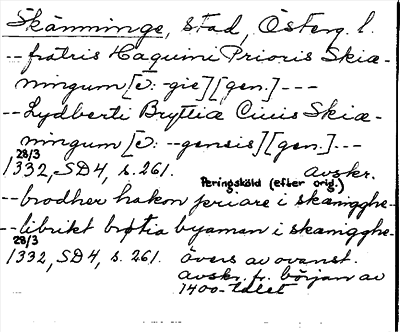 Skänninge, stad, Österg. l.
-- fratris Haquini Prioris Skiæ-
ningum [ɔ: -gie] [gen.] ---
-- Lydberti Bryttiæ Ciuis Skiæ-
ningum [ɔ: --gensis] [gen.] ---
28/3
1332, SD4, s. 261. avskr.
Peringsköld (efter orig.)
-- brodher hakon priare i skæningghe--
-- librikt brøtia byaman i skæningghe--
28/3
1332, SD4, s. 261. övers av ovanst.
avskr. fr. början av
1400-talet